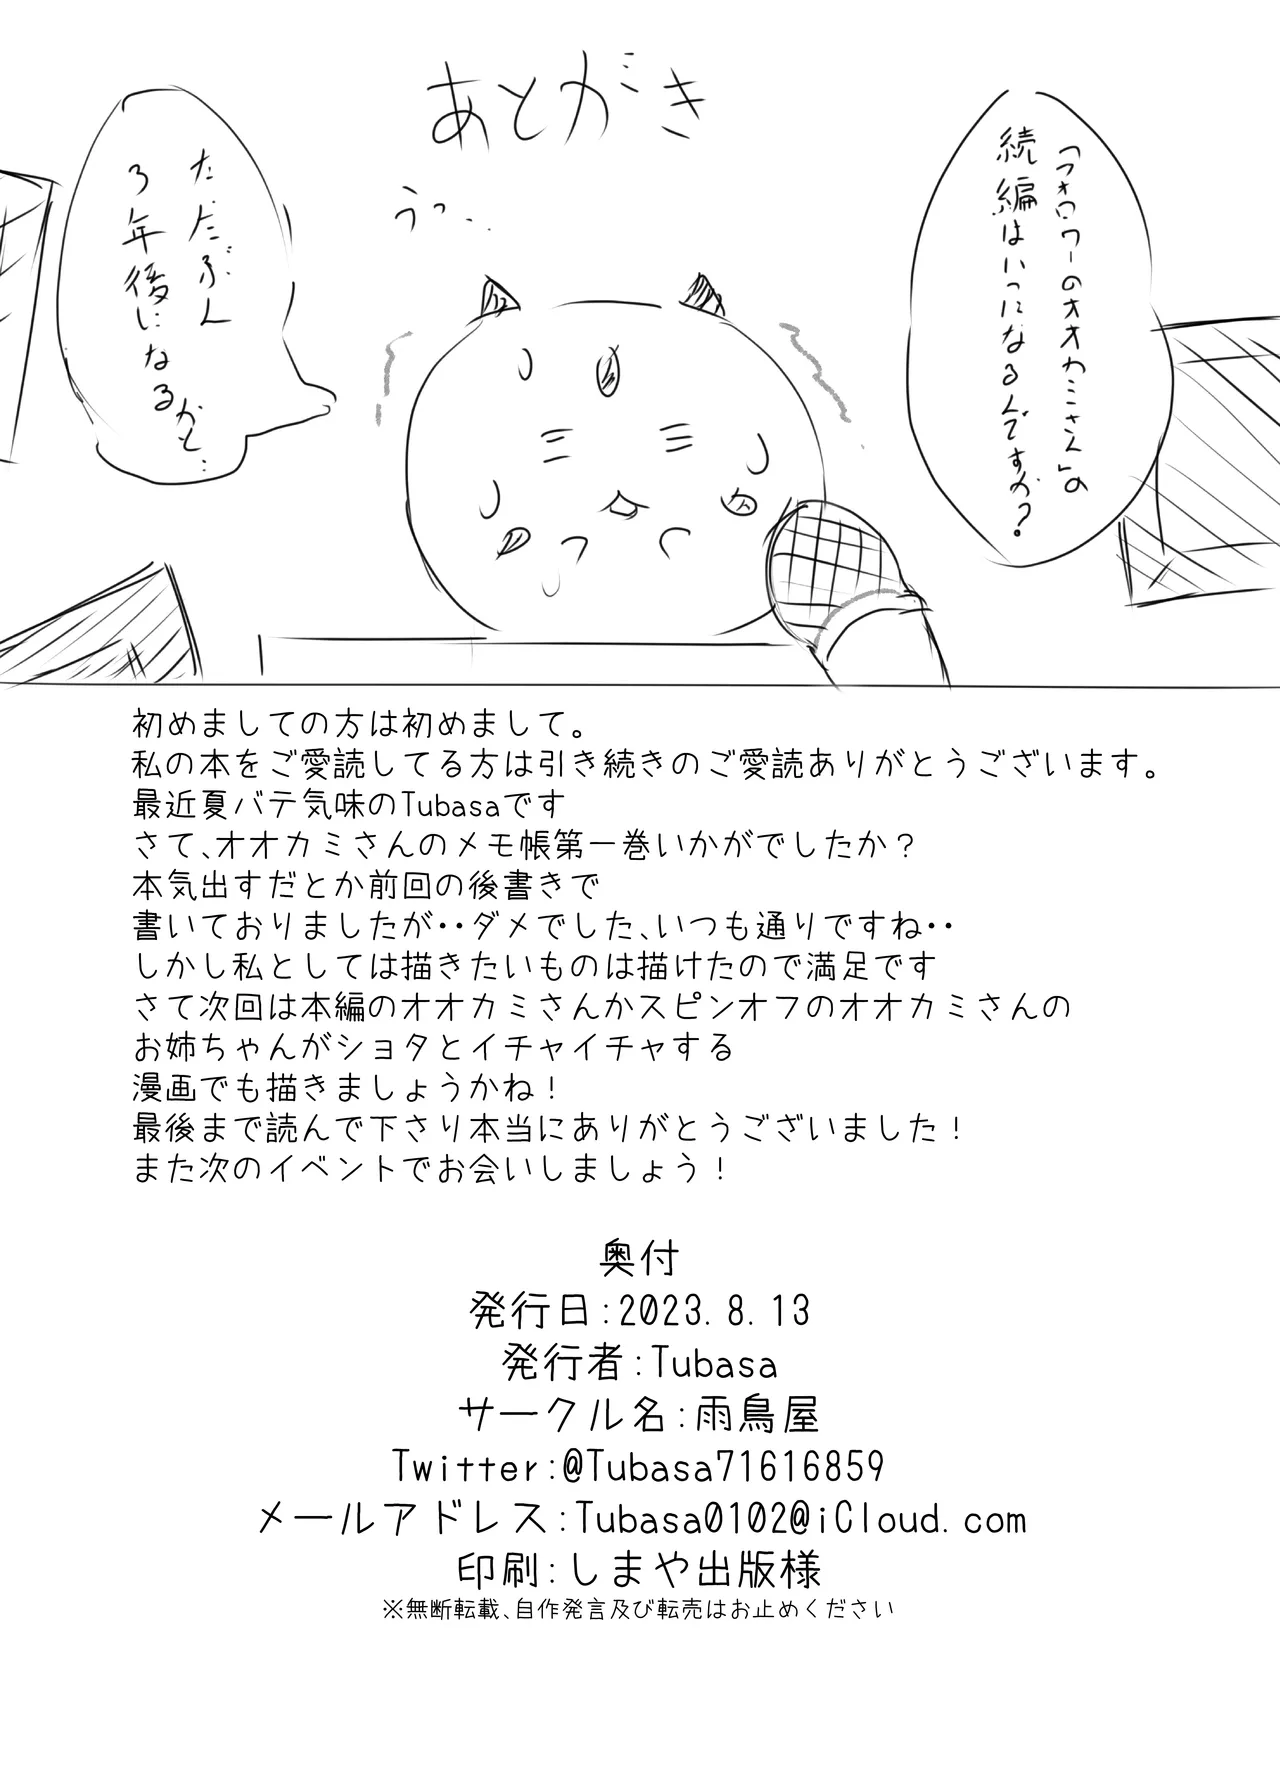 あとがき
「フォロワーのオオカミさん」の
続編はいつになるんですか？
うっ..
たたぶん
3年後になるかと...
初めましての方は初めまして。
私の本をご愛読してる方は引き続きのご愛読ありがとうございます。
最近夏バテ気味のTubasaです
さて、オオカミさんのメモ帳第一巻いかがでしたか？
本気出すだとか前回の後書きで
書いておりましたが・・ダメでした、いつも通りですね・・
しかし私としては描きたいものは描けたので満足です
さて次回は本編のオオカミさんかスピンオフのオオカミさんの
お姉ちゃんがショタとイチャイチャする
漫画でも描きましょうかね！
最後まで読んで下さり本当にありがとうございました！
また次のイベントでお会いしましょう！
奥付
発行日:2023.8.13
発行者:Tubasa
サークル名:雨鳥屋
Twitter:@Tubasa71616859
メールアドレス:Tubasa0102@iCloud.com
印刷:しまや出版様
※無断転載、自作発言及び転売はお止めください